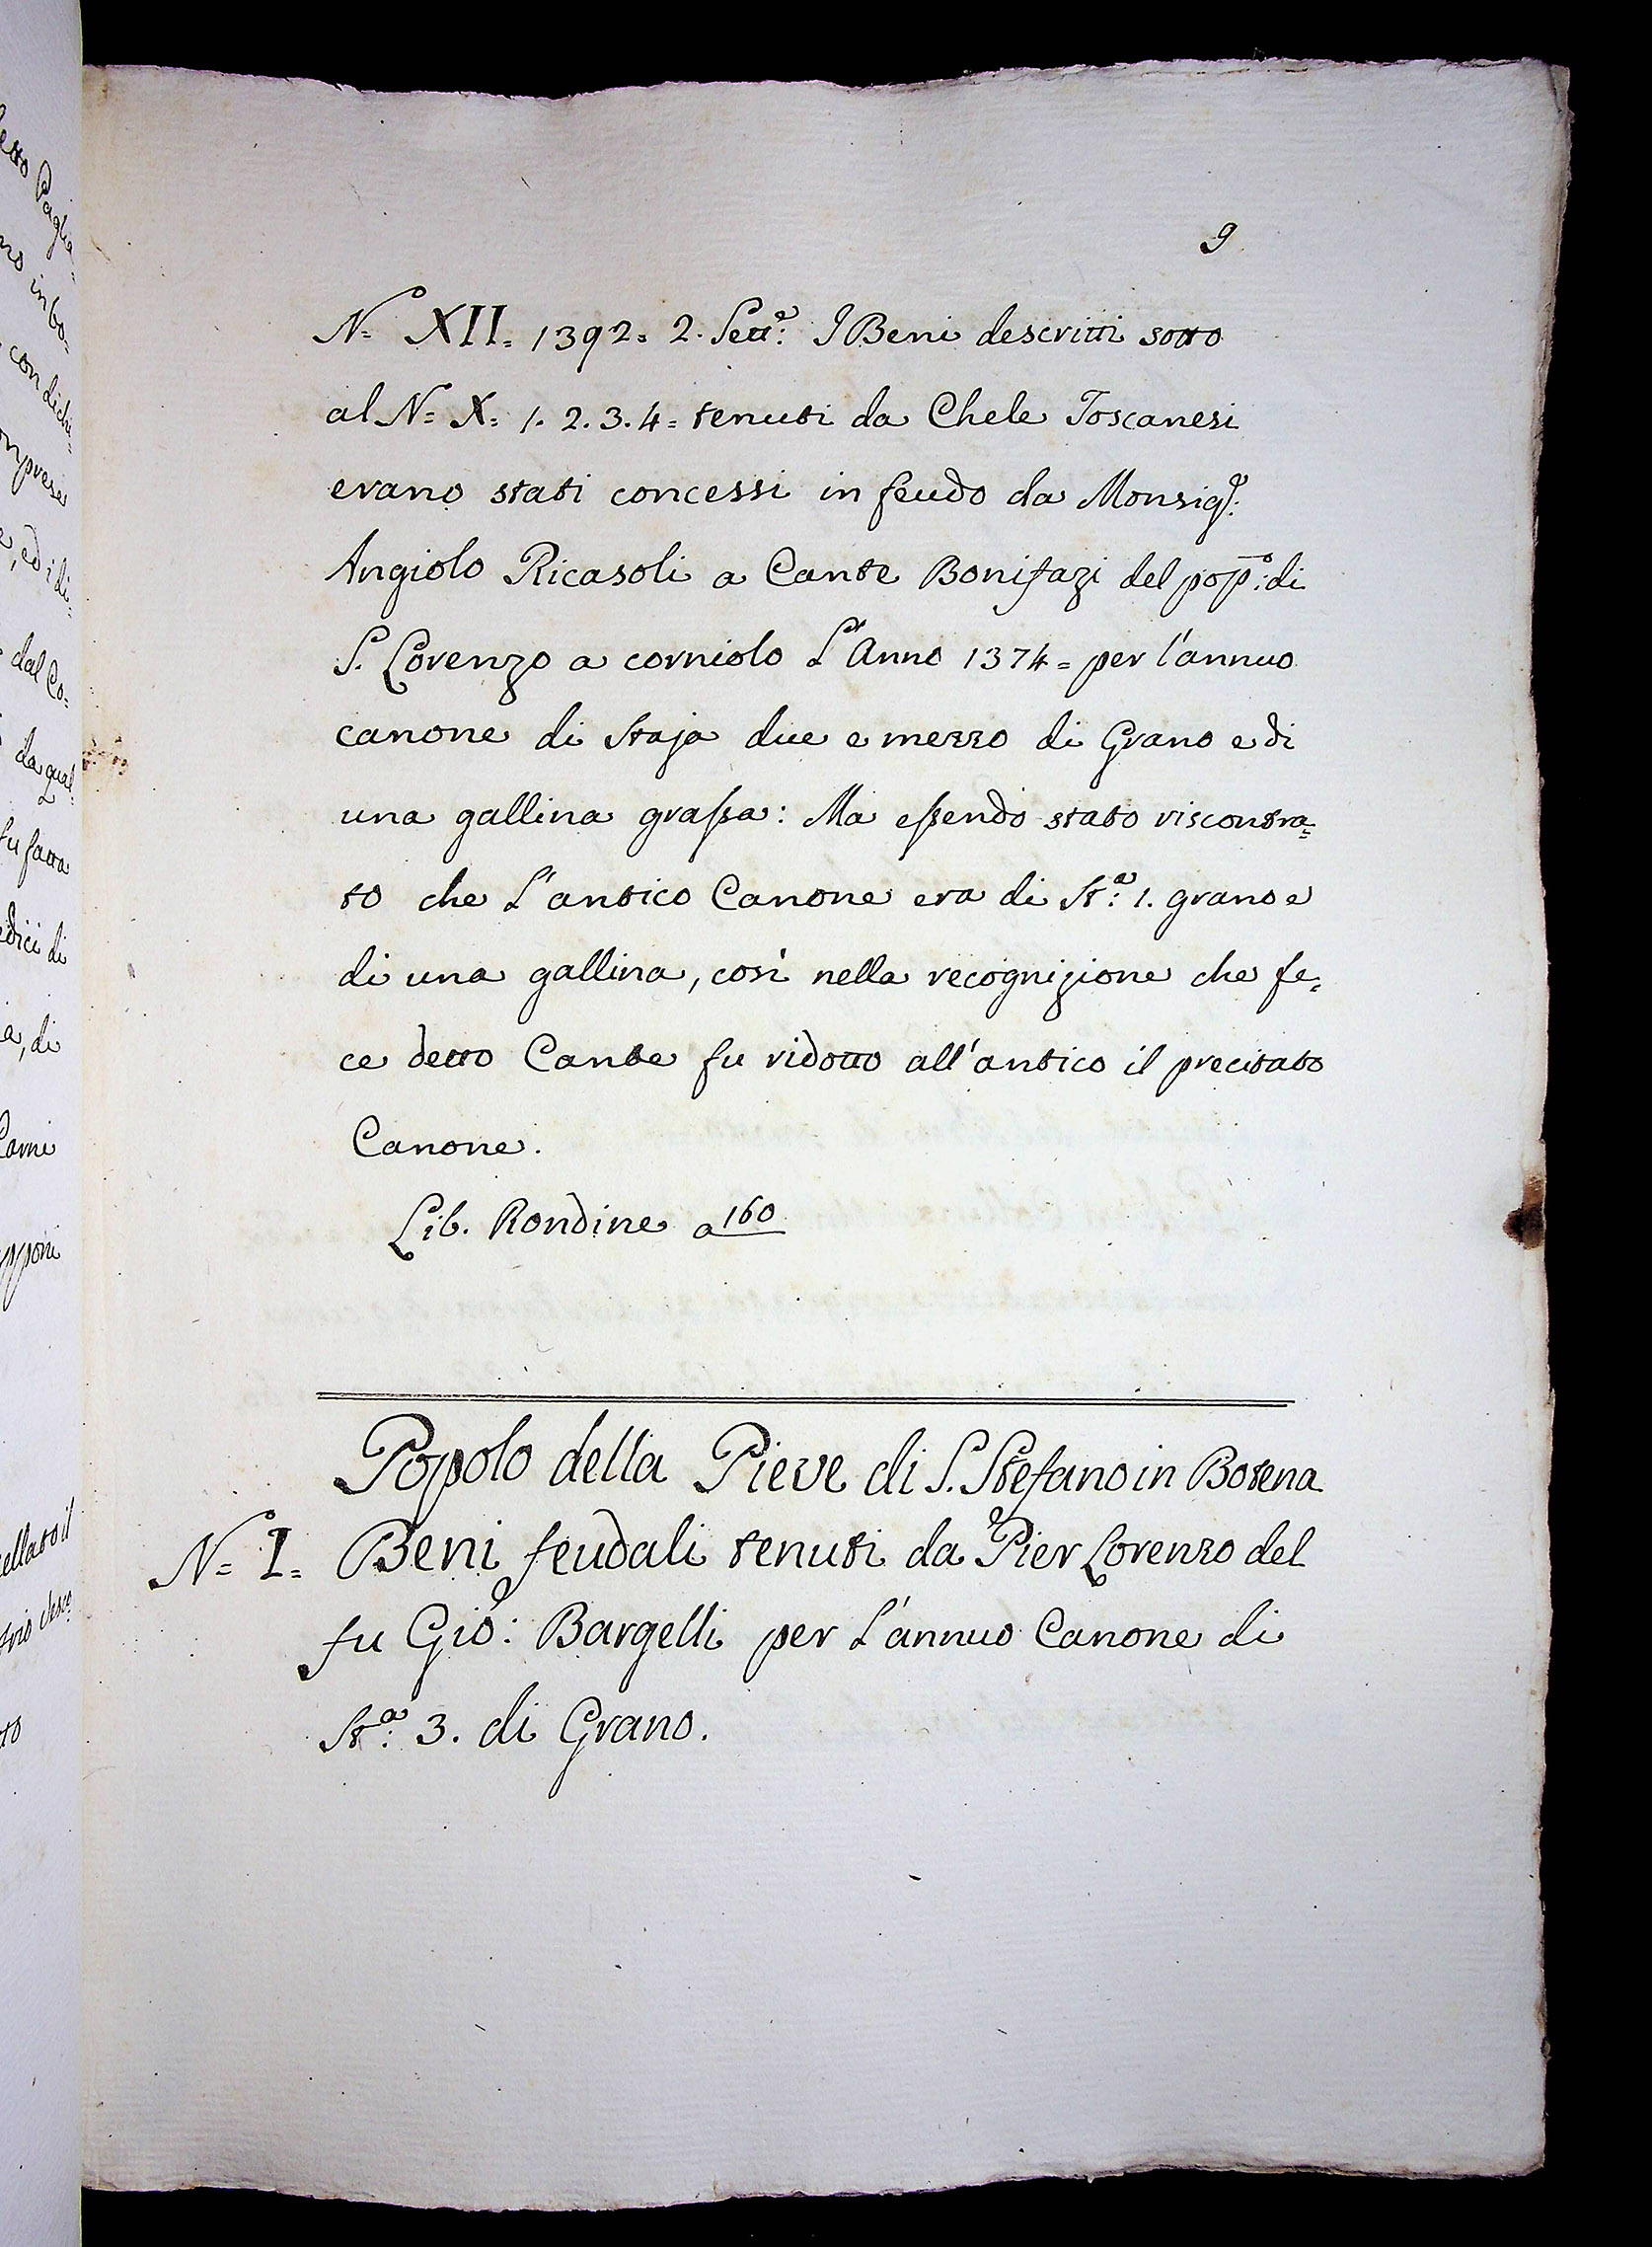 9
N= XII= 1392= 2. Sett.e I Beni descritti sotto
al N= X= 1. 2. 3. 4= tenuti da Chele Toscanesi
erano stati concessi in feudo da Monsig.r
Angiolo Ricasoli a Cante Bonifazi del pop.o di
S. Lorenzo a corniolo L'Anno 1374= per l'annuo
canone di Staja due e mezzo di Grano e di
una gallina grassa: Ma essendo stato riscontra=
to che L'antico Canone era di St.a 1. grano e
di una gallina, così nella recognizione che fe=
ce detto Cante fu ridotto all'antico il precitato
Canone.
Lib. Rondine a 160
Popolo della Pieve di S. Stefano in Botena
N= I= Beni feudali tenuti da Pier Lorenzo del
fu Gio: Bargelli per L'annuo Canone di
St.a 3. di Grano.